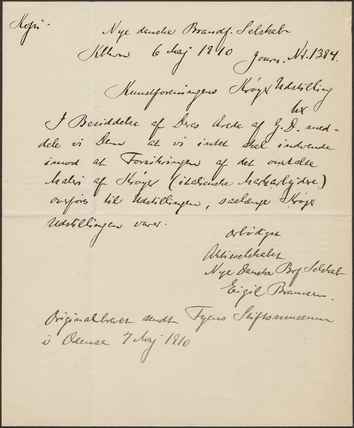 Kopi.
Nye danske Brandf. Selskab
Kbhvn 6 Maj 1910 Journ. Nr. 1384.
Kunstforeningens Krøyer Udstilling
hx
I Besiddelse af Deres ærede af G. D. med-
dele vi Dem at vi intet skal indvende
imod at Forsikringen af det omtalte
Maleri af Krøyer (italienske Markarbejdere)
overføres til Udstillingen, saalænge Krøyer
Udstillingen varer.
ærbødigst
Aktieselskabet
Nye Danske Brf Selskab
Eigil Bramsen.
Originalbrevet sendt Fyens Stiftsmuseum
i Odense 7 Maj 1910